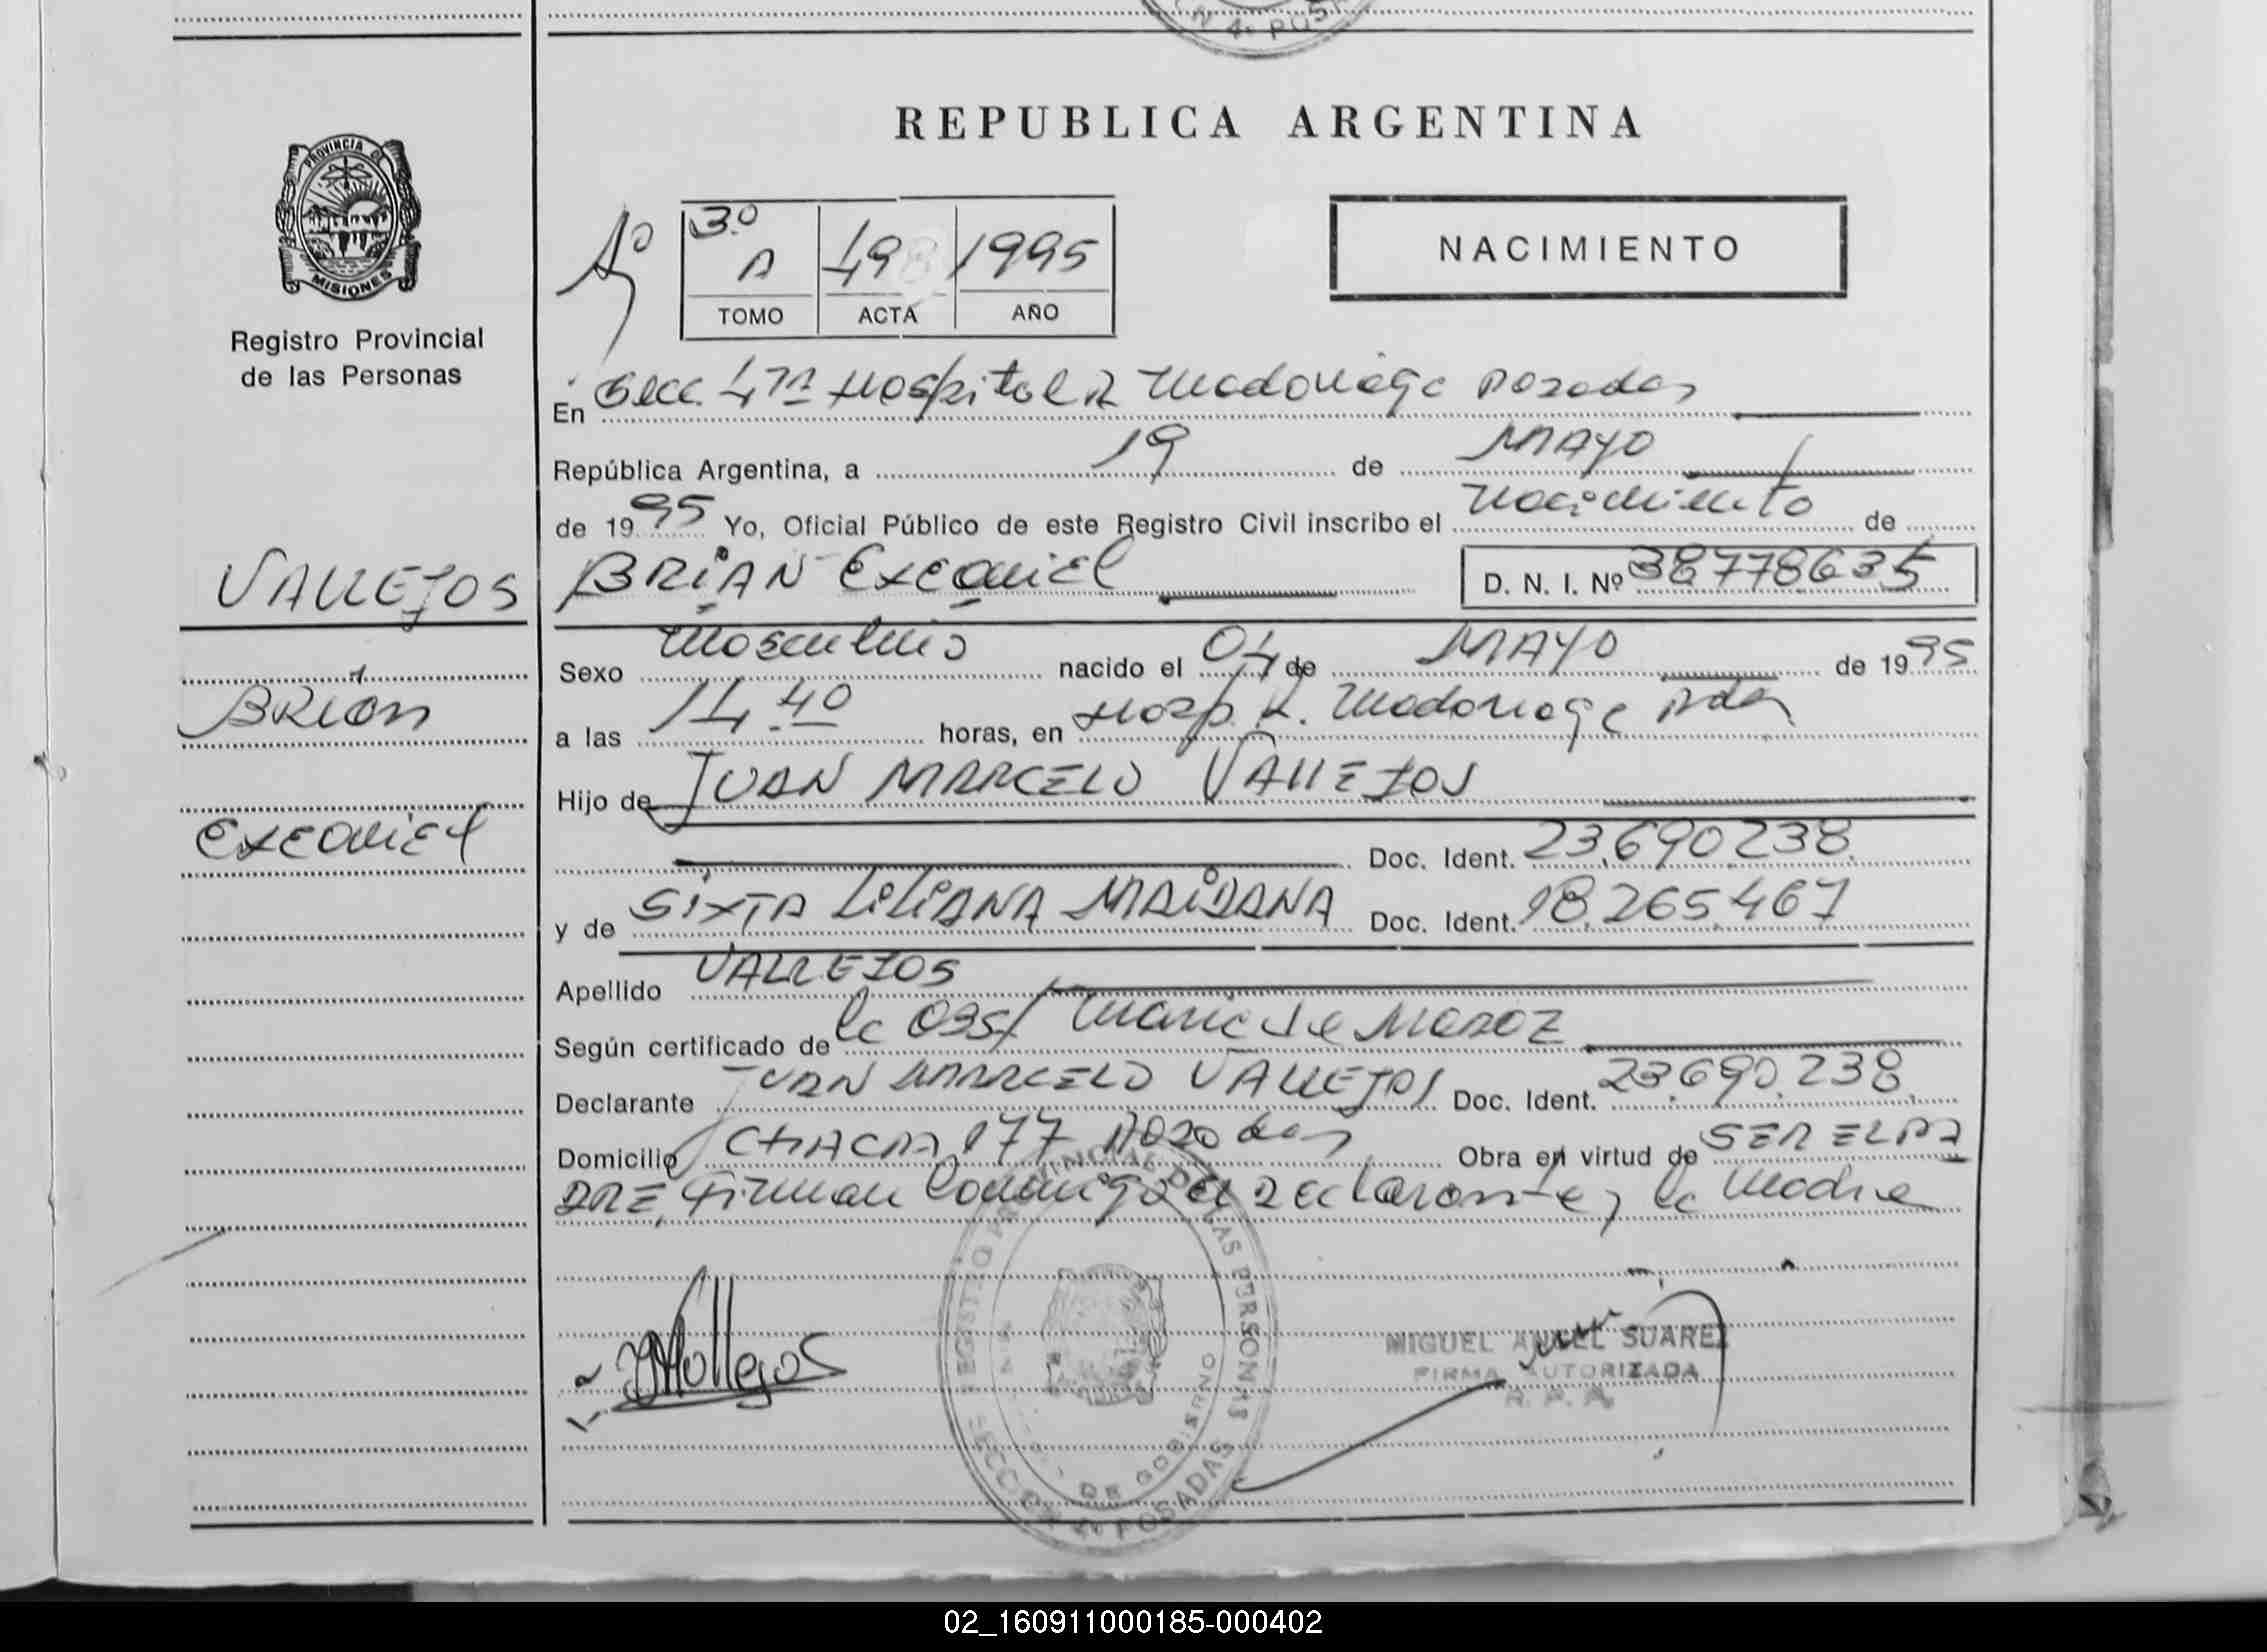 N 4a POSA
REPUBLICA ARGENTINA
PROVINCIA DE
MISIONES
Registro Provincial
de las Personas
3º
A
498
1995
TOMO
ACTA
AÑO
NACIMIENTO
En Secc. 4ta Hospital R Madariaga Posadas
República Argentina, a 19 de MAYO
de 1995 Yo, Oficial Público de este Registro Civil inscribo el Nacimiento de
VALLEJOS
BRIAN EXEQUIEL
D. N. I. Nº 38778635
Sexo Masculino nacido el 04 de MAYO de 1995
Brian
a las 14 40 horas, en Hosp. R. Madariaga Pdas
Hijo de JUAN MARCELO VALLEJOS
EXEQUIEL
Doc. Ident. 23.690.238
y de SIXTA LILIANA MAIDANA Doc. Ident. 18.265.467
Apellido VALLEJOS
Según certificado de la Obst Maria de
Declarante JUAN MARCELO VALLEJOS Doc. Ident. 23.690.238.
Domicilio CHACRA 177 Posadas Obra en virtud de SER EL PA
DRE, Firman conmigo el declarante y la Madre
REGISTRO PROVINCIAL DE LAS PERSONAS
DE GOBIERNO
SECCION 4a POSADAS
Vallejos
MIGUEL ANGEL SUAREZ
FIRMA AUTORIZADA
R. P. A.
02_160911000185-000402